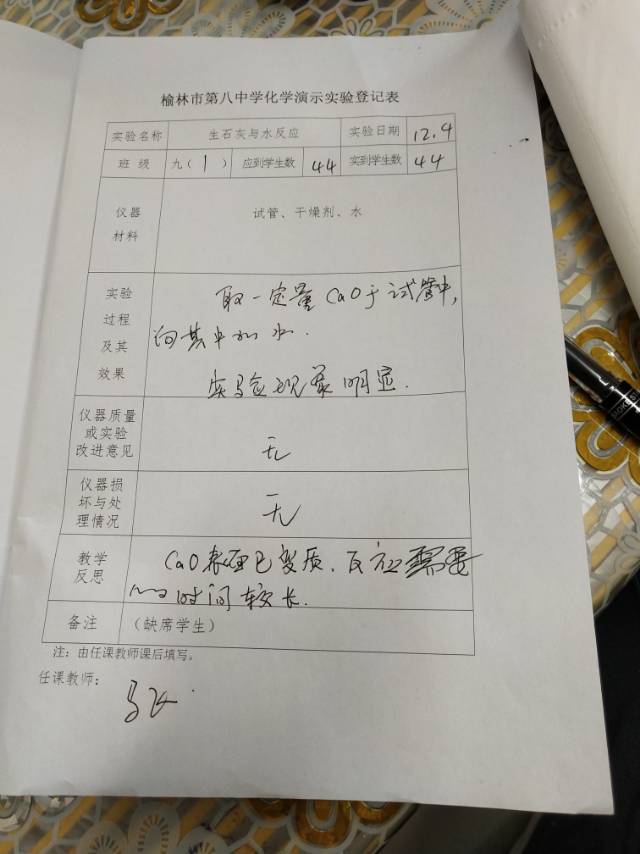 榆林市第八中学化学演示实验登记表
实验名称 生石灰与水反应 实验日期 12.9
班 级 九(1) 应到学生数 44 实到学生数 44
仪器
材料
试管、干燥剂、水
实验
过程
及其
效果
取一定量CaO于试管中,
向其中加水.
实验现象明显.
仪器质量
或实验
改进意见
无
仪器损
坏与处
理情况
无
教学
反思
CaO表面已变质.反应需要
的时间较长.
备注 (缺席学生)
注:由任课教师课后填写。
任课教师: